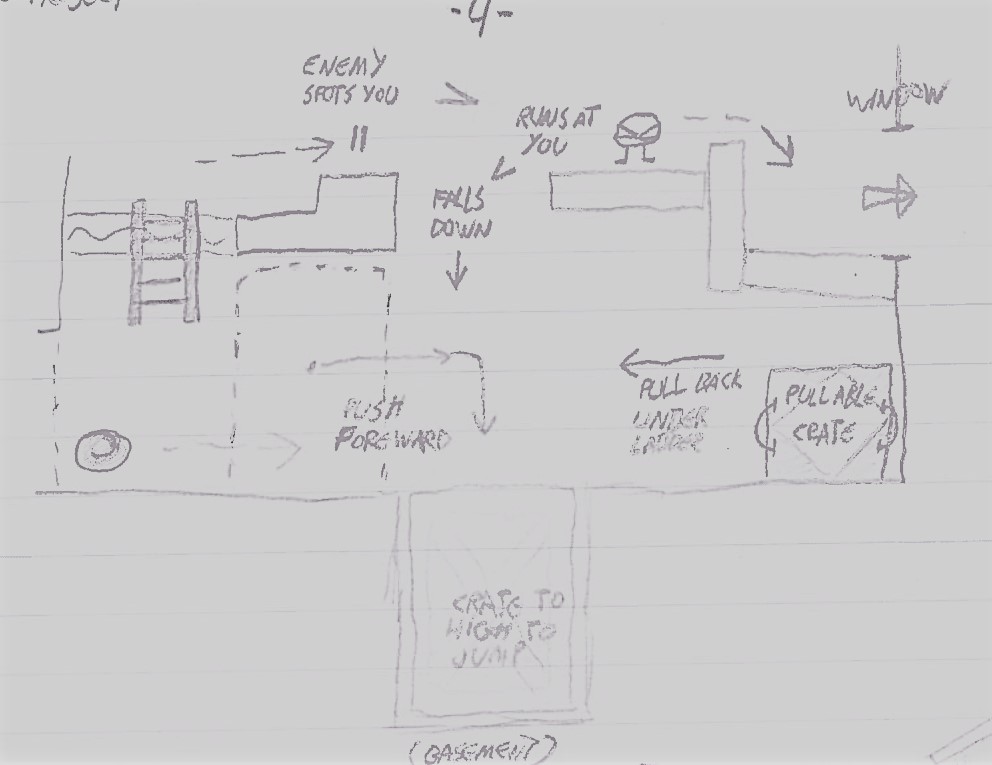 -4-
ENEMY
SPOTS YOU
RUNS AT
YOU
WINDOW
FALLS
DOWN
PUSH
FOREWARD
PULL BACK
UNDER
LADDER
PULLABLE
CRATE
CRATE TO
HIGH TO
JUMP
(BASEMENT)